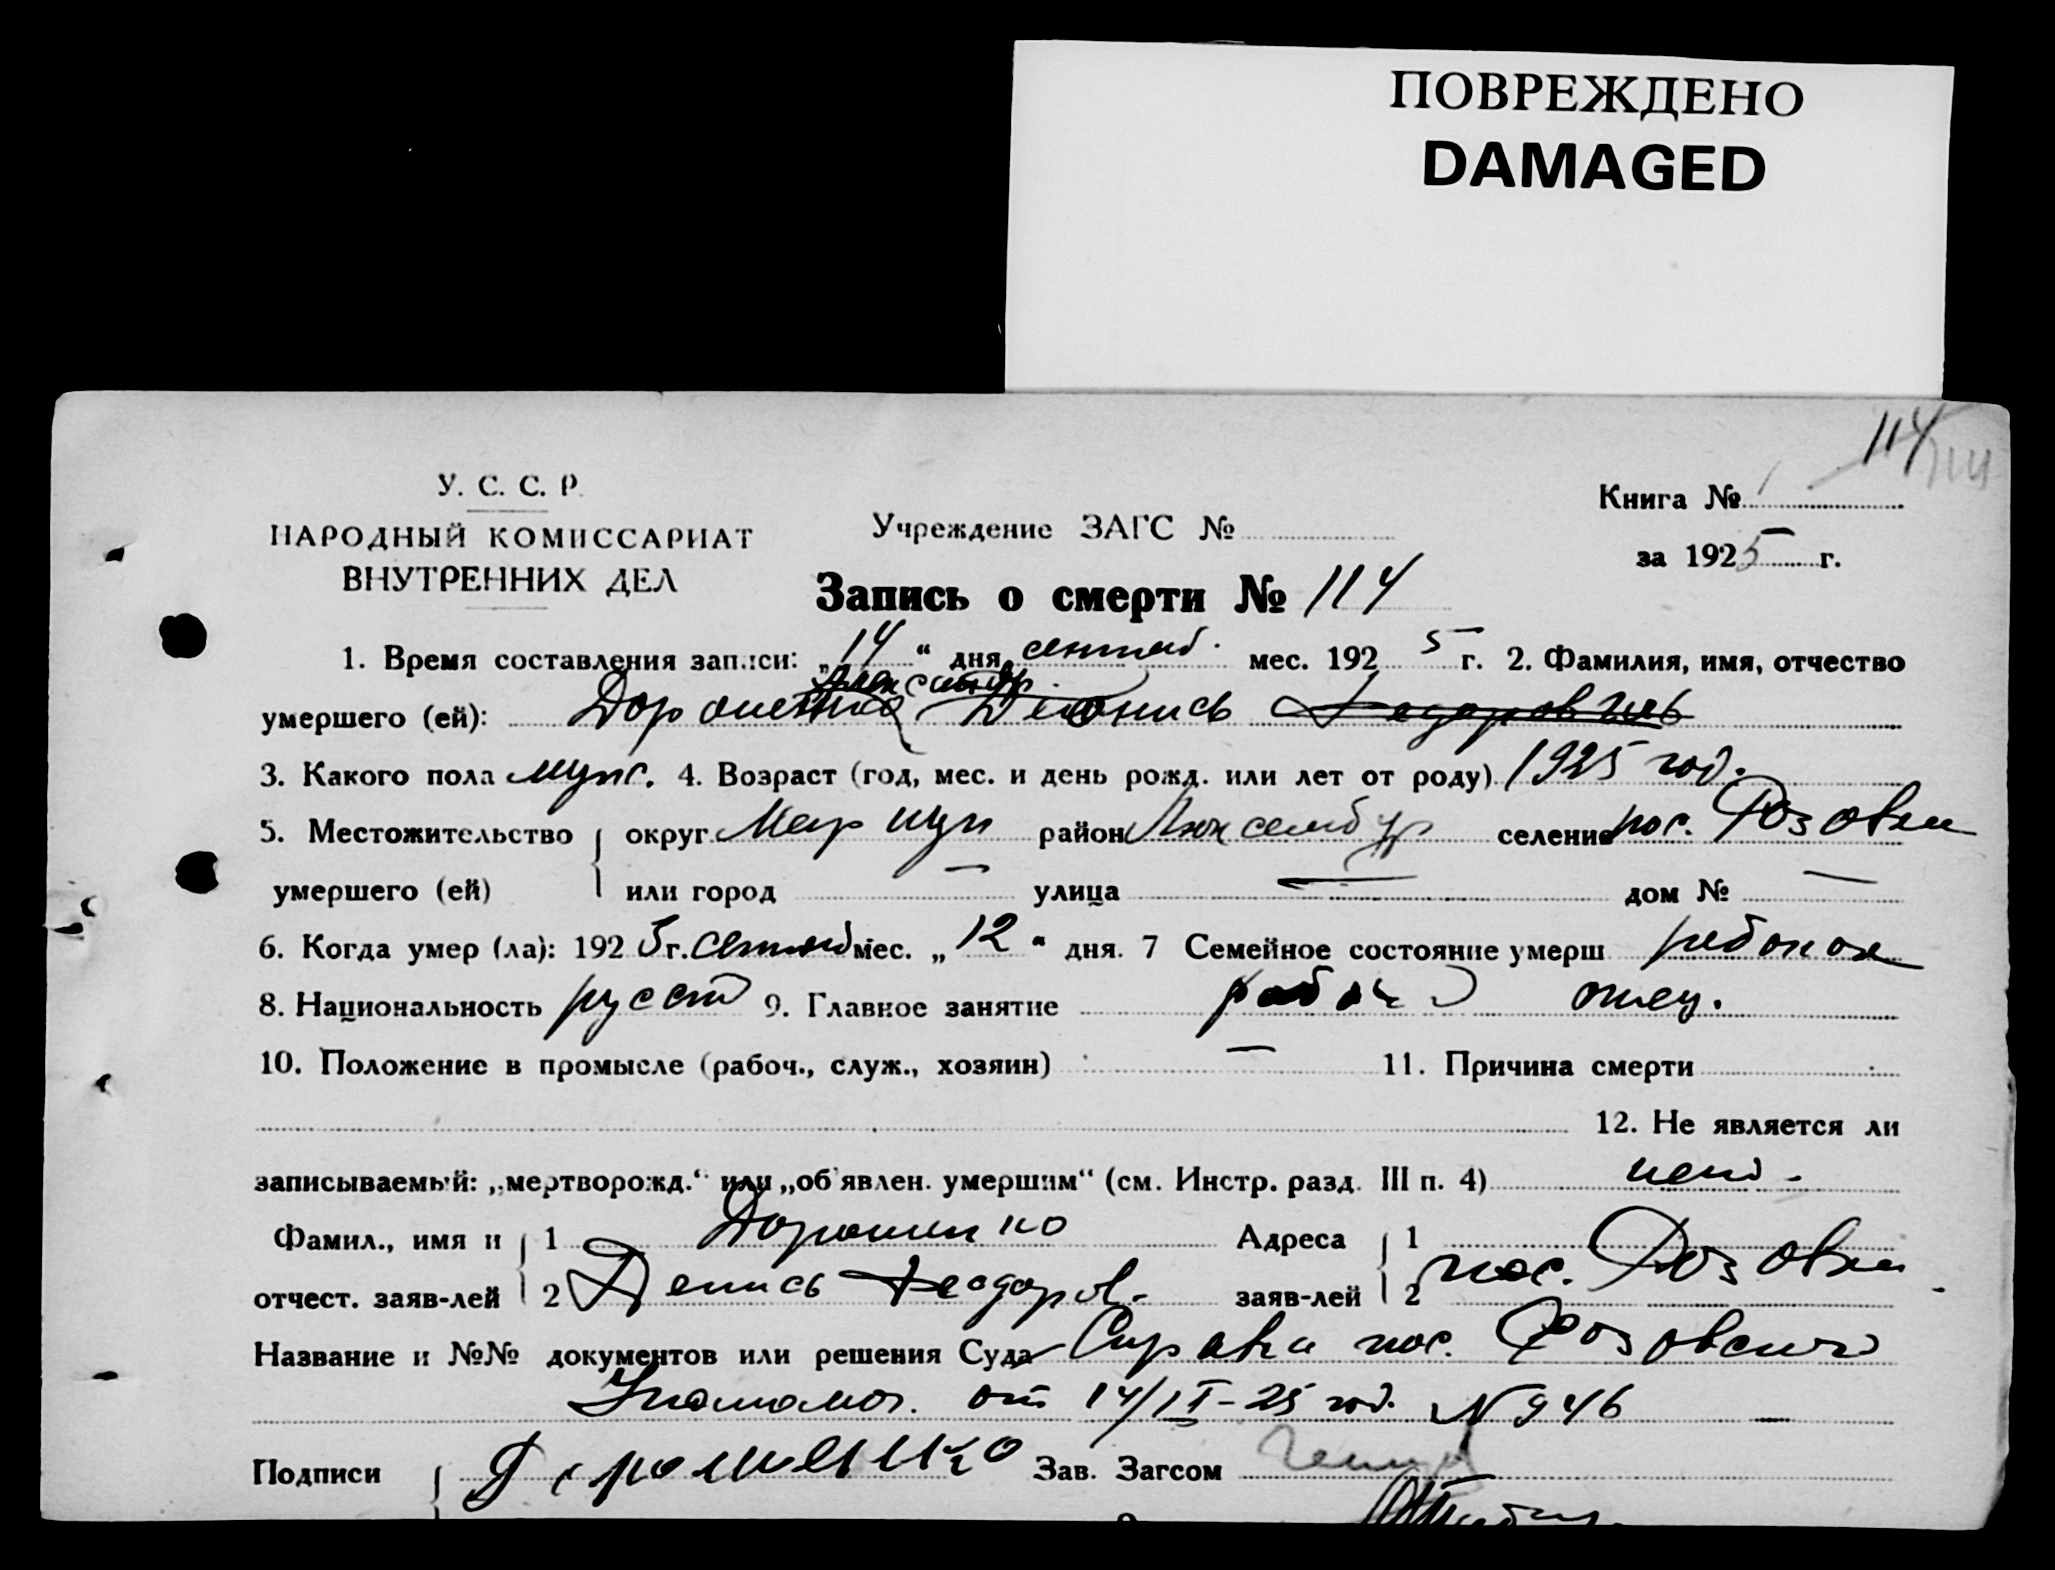 ПОВРЕЖДЕНО
DAMAGED
114
У. С. С. Р.
НАРОДНЫЙ КОМИССАРИАТ
ВНУТРЕННИХ ДЕЛ
Учреждение ЗАГС №
Книга № 1
за 1925 г.
Запись о смерти № 114
1. Время составления записи: „14“ дня, сентяб. мес. 1925 г. 2. Фамилия, имя, отчество
Александр
умершего (ей): Дорошенко Денись Федоровичь
3. Какого пола муж. 4. Возраст (год, мес. и день рожд. или лет от роду) 1925 год.
5. Местожительство округ Мариуп район Люксембур селение пос. Розовка
умершего (ей) или город — улица — дом № —
6. Когда умер (ла): 1925 г. сентяб мес. „12“ дня. 7 Семейное состояние умерш ребонок
8. Национальность русст 9. Главное занятие рабоч отец.
10. Положение в промысле (рабоч., служ., хозяин) — 11. Причина смерти
12. Не является ли
записываемый: „мертворожд.“ или „об'явлен. умершим“ (см. Инстр. разд. III п. 4) нет -
Фамил., имя и 1 Дорошенко Адреса 1
отчест. заяв-лей 2 Денись Федоров- заяв-лей 2 пос. Розовка
Название и №№ документов или решения Суда Справка пос. Розовского
от 14/IX-25 год. N 946
Подписи Дорошенко Зав. Загсом